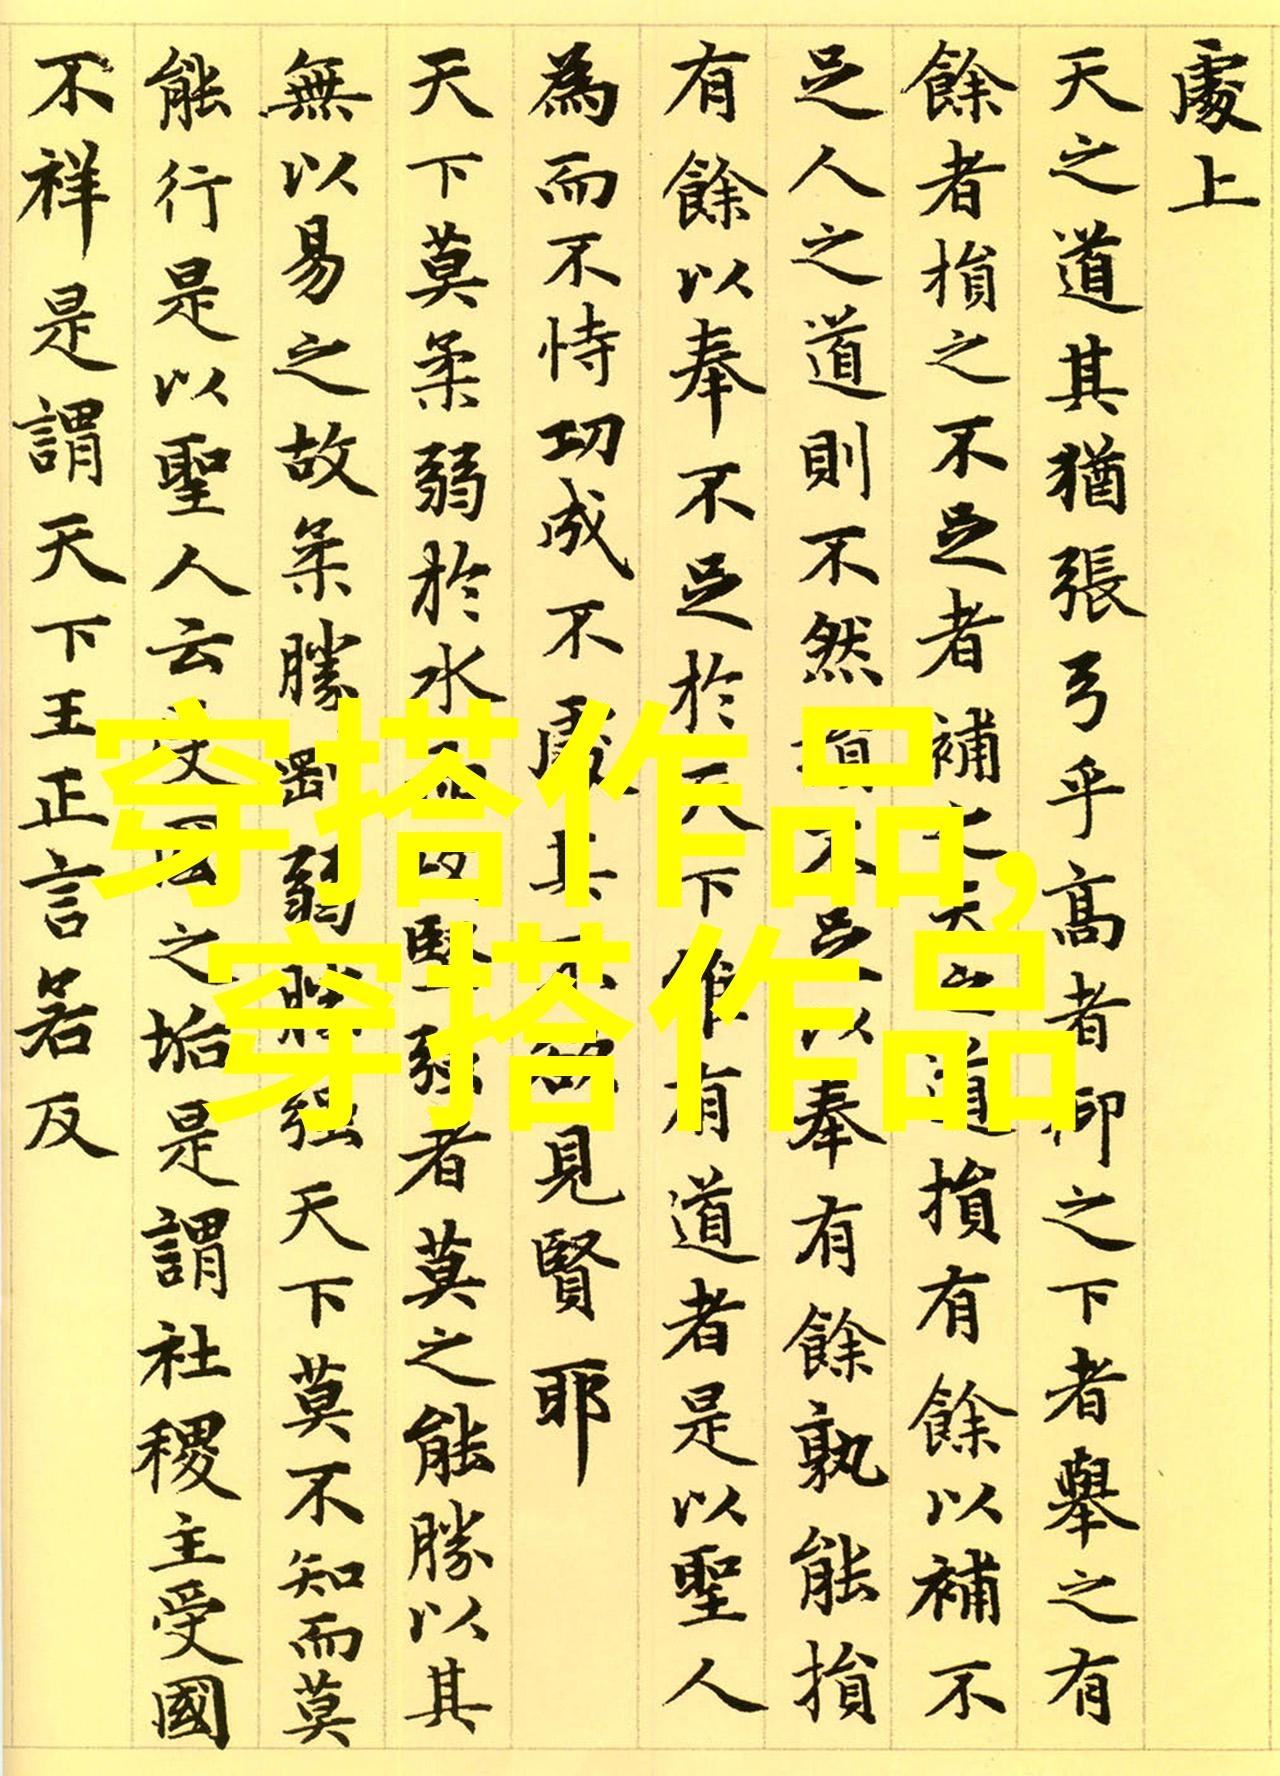 處上
天之道其猶張弓乎高者抑之下者舉之有
餘者損之不足者補之天之道損有餘以補不
足人之道則不然損不足以奉有餘孰能損
有餘以奉不足於天下唯有道者是以聖人
為而不恃功成不處其不欲見賢耶
天下莫柔弱於水而攻堅強者莫之能勝以其
無以易之故柔勝剛弱勝強天下莫不知而莫
能行是以聖人云受國之垢是謂社稷主受國
不祥是謂天下王正言若反
穿搭作品,
穿搭作品